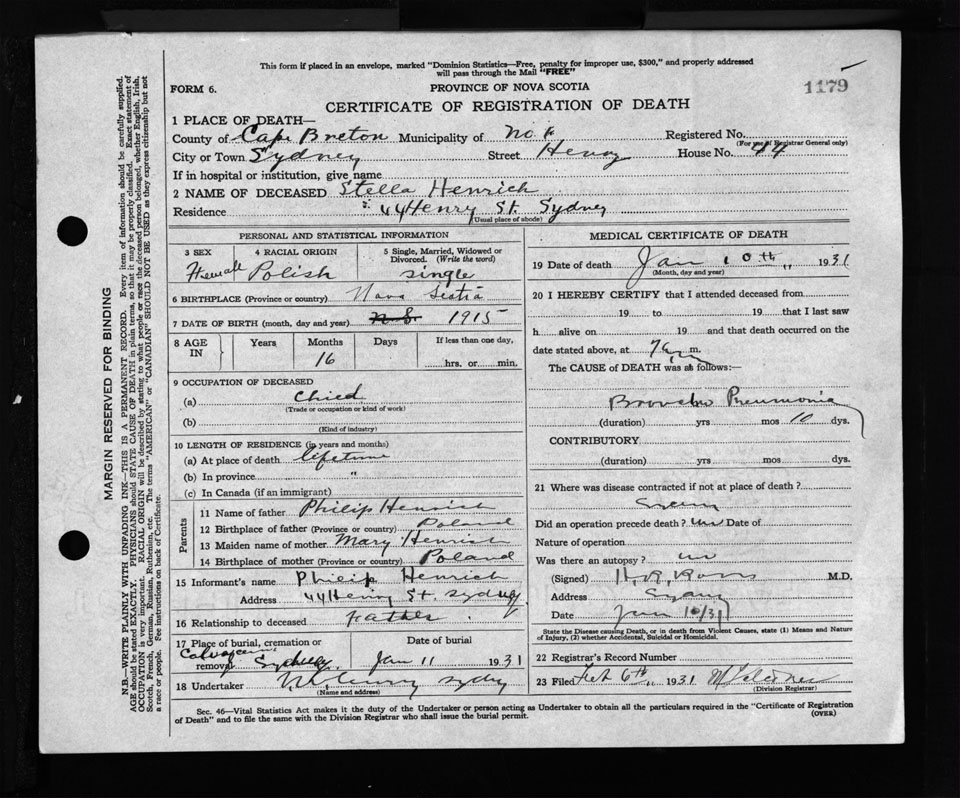 This form if placed in an envelope, marked "Dominion Statistics—Free, penalty for improper use, $300," and properly addressed
will pass through the Mail "FREE"
1179
FORM 6.
PROVINCE OF NOVA SCOTIA
CERTIFICATE OF REGISTRATION OF DEATH
1 PLACE OF DEATH—
County of Cape Breton Municipality of No. Registered No.
(For use of Registrar General only)
City or Town Sydney Street Henry House No. 44
If in hospital or institution, give name
2 NAME OF DECEASED Stella Henrich
Residence 44 Henry St. Sydney
(Usual place of abode)
PERSONAL AND STATISTICAL INFORMATION
3 SEX 4 RACIAL ORIGIN 5 Single, Married, Widowed or Divorced. (Write the word)
Femall Polish single
6 BIRTHPLACE (Province or country) Nova Scotia
7 DATE OF BIRTH (month, day and year) N.S. 1915
8 AGE IN Years Months Days If less than one day,
16 hrs. or min.
9 OCCUPATION OF DECEASED
(a) Child
(Trade or occupation or kind of work)
(b)
(Kind of industry)
10 LENGTH OF RESIDENCE (in years and months)
(a) At place of death lifetime
(b) In province "
(c) In Canada (if an immigrant)
Parents
11 Name of father Philip Henrich
12 Birthplace of father (Province or country) Poland
13 Maiden name of mother Mary Henrich
14 Birthplace of mother (Province or country) Poland
15 Informant's name Philip Henrich
Address 44 Henry St. Sydney
16 Relationship to deceased Father
17 Place of burial, cremation or removal Date of burial
Sydney Jan 11 1931
18 Undertaker Sydney
(Name and address)
MEDICAL CERTIFICATE OF DEATH
19 Date of death Jan 10th " 1931
(Month, day and year)
20 I HEREBY CERTIFY that I attended deceased from
19 to 19 that I last saw
h alive on 19 and that death occurred on
date stated above, at 7 a m.
The CAUSE of DEATH was as follows:—
Broncho Pneumonia
(duration) yrs mos 10 dys.
CONTRIBUTORY
(duration) yrs mos dys.
21 Where was disease contracted if not at place of death?
Did an operation precede death? Date of
Nature of operation
Was there an autopsy?
(Signed) M.D.
Address Sydney
Date Jan 10/31
State the Disease causing Death, or in death from Violent Causes, state (1) Means and Nature of Injury, (2) whether Accidental, Suicidal or Homicidal.
22 Registrar's Record Number
23 Filed Feb 6th, 1931
(Division Registrar)
Sec. 46—Vital Statistics Act makes it the duty of the Undertaker or person acting as Undertaker to obtain all the particulars required in the "Certificate of Registration
of Death" and to file the same with the Division Registrar who shall issue the burial permit.
(OVER)
MARGIN RESERVED FOR BINDING
N.B.—WRITE PLAINLY WITH UNFADING INK—THIS IS A PERMANENT RECORD. Every item of information should be carefully supplied.
AGE should be stated EXACTLY. PHYSICIANS should STATE CAUSE OF DEATH in plain terms, so that it may be properly classified. Exact statement of
OCCUPATION is very important. RACIAL ORIGIN will be described by stating to what people or race the deceased person belonged, whether English, Irish,
Scotch, French, German, Russian, Ruthenian, etc. The terms "AMERICAN" or "CANADIAN" SHOULD NOT BE USED as they express citizenship but not
a race or people. See instructions on back of Certificate.